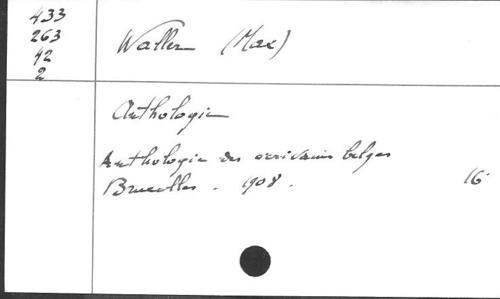 433
263
42
2
Waller (Max)
Anthologie
Anthologie des écrivains belges
Bruxelles - 1908. 16